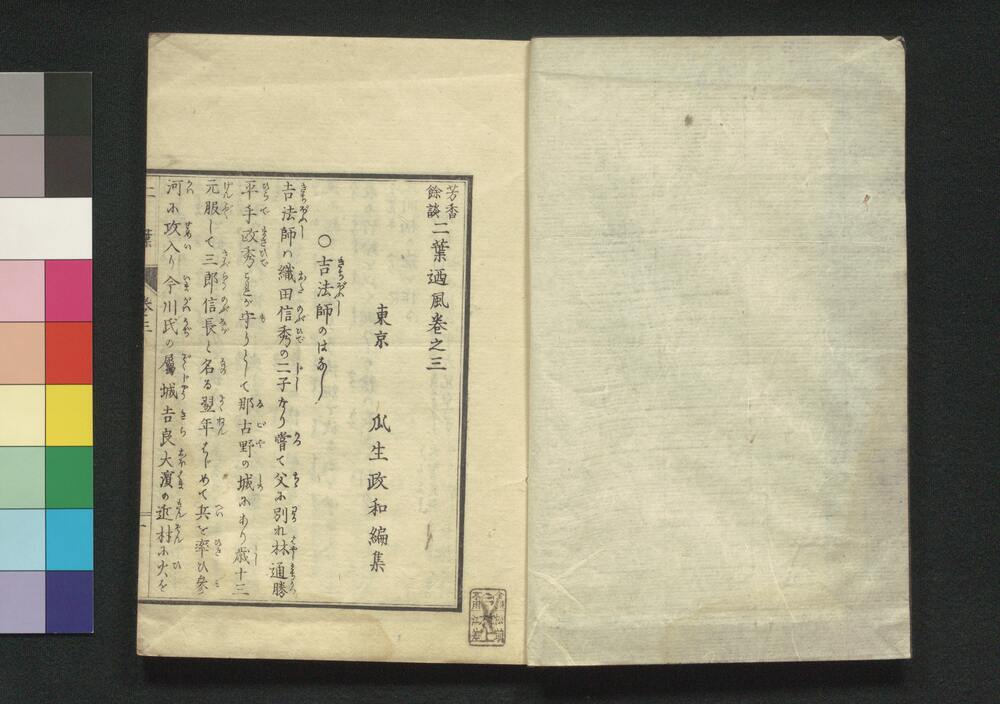 芳香餘談 二葉廼風卷之三
東京 瓜生政和編集
○吉法師のはなし
吉法師ハ織田信秀の二子なり嘗て父に別れ林通勝
平手政秀これが守りとして那古野の城にあり歳十三
元服して三郎信長と名る翌年はじめて兵を率ひ參
河に攻入り今川氏の屬城吉良大濱の近村に火を
二葉 卷三 一